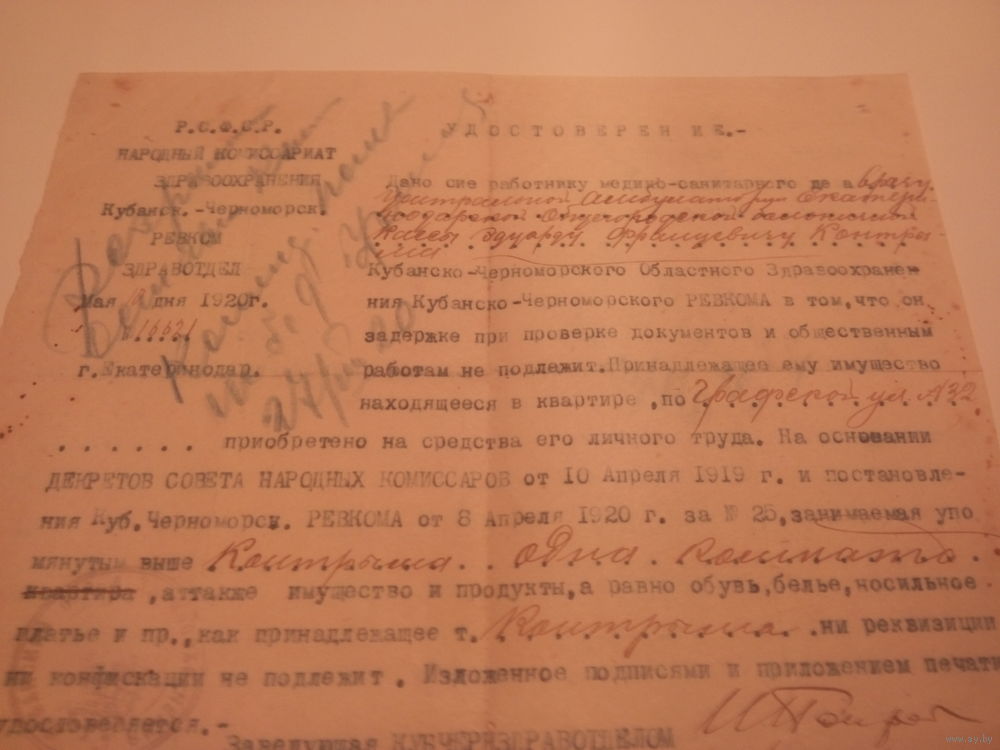 Р.С.Ф.С.Р.
НАРОДНЫЙ КОМИССАРИАТ
ЗДРАВООХРАНЕНИЯ
Кубанск.-Черноморск.
РЕВКОМ
ЗДРАВОТДЕЛ
Мая дня 1920г.
№ 16621
г.Екатеринодар.
УДОСТОВЕРЕНИЕ.-
Дано сие работнику медико-санитарного де а врачу
Центральной Амбулатории Екатери-
нодарской Общегородской больничной
кассы Эдуарду Францевичу Контры-
му
Кубанско-Черноморского Областного Здравоохране-
ния Кубанско-Черноморского РЕВКОМА в том,что он
задержке при проверке документов и общественным
работам не подлежит.Принадлежащее ему имущество
находящееся в квартире ,по Графской ул №32
. . . . . . приобретено на средства его личного труда. На основании
ДЕКРЕТОВ СОВЕТА НАРОДНЫХ КОМИССАРОВ от 10 Апреля 1919 г. и постановле-
ния Куб.Черноморск. РЕВКОМА от 8 Апреля 1920 г. за № 25,занимаемая упо
мянутым выше Контрыма . . одна . комната .
квартира ,аттакже имущество и продукты,а равно обувь,белье,носильное
платье и пр.,как принадлежащее т. Контрыма . ни реквизиции
ни конфискации не подлежит. Изложенное подписями и приложением печати
удостоверяется.-
Заведующая КУБЧЕРНЗДРАВОТДЕЛОМ
www.ay.by